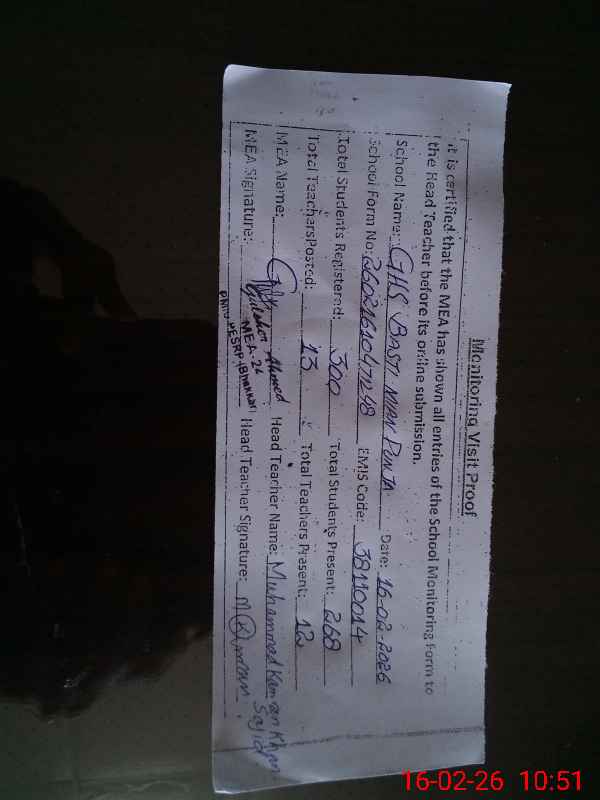 Monitoring Visit Proof
It is certified that the MEA has shown all entries of the School Monitoring Form to
the Head Teacher before its online submission.
School Name: GHS BASTI MIAN PUNJA Date: 16-02-2026
School Form No: EMIS Code: 38110014
Total Students Registered: 300 Total Students Present: 268
Total Teachers Posted: 13 Total Teachers Present: 12
MEA Name: Ahmed Head Teacher Name: Muhammad Kamran Khan Sajid
MEA-26
MEA Signature: Head Teacher Signature:
16-02-26 10:51